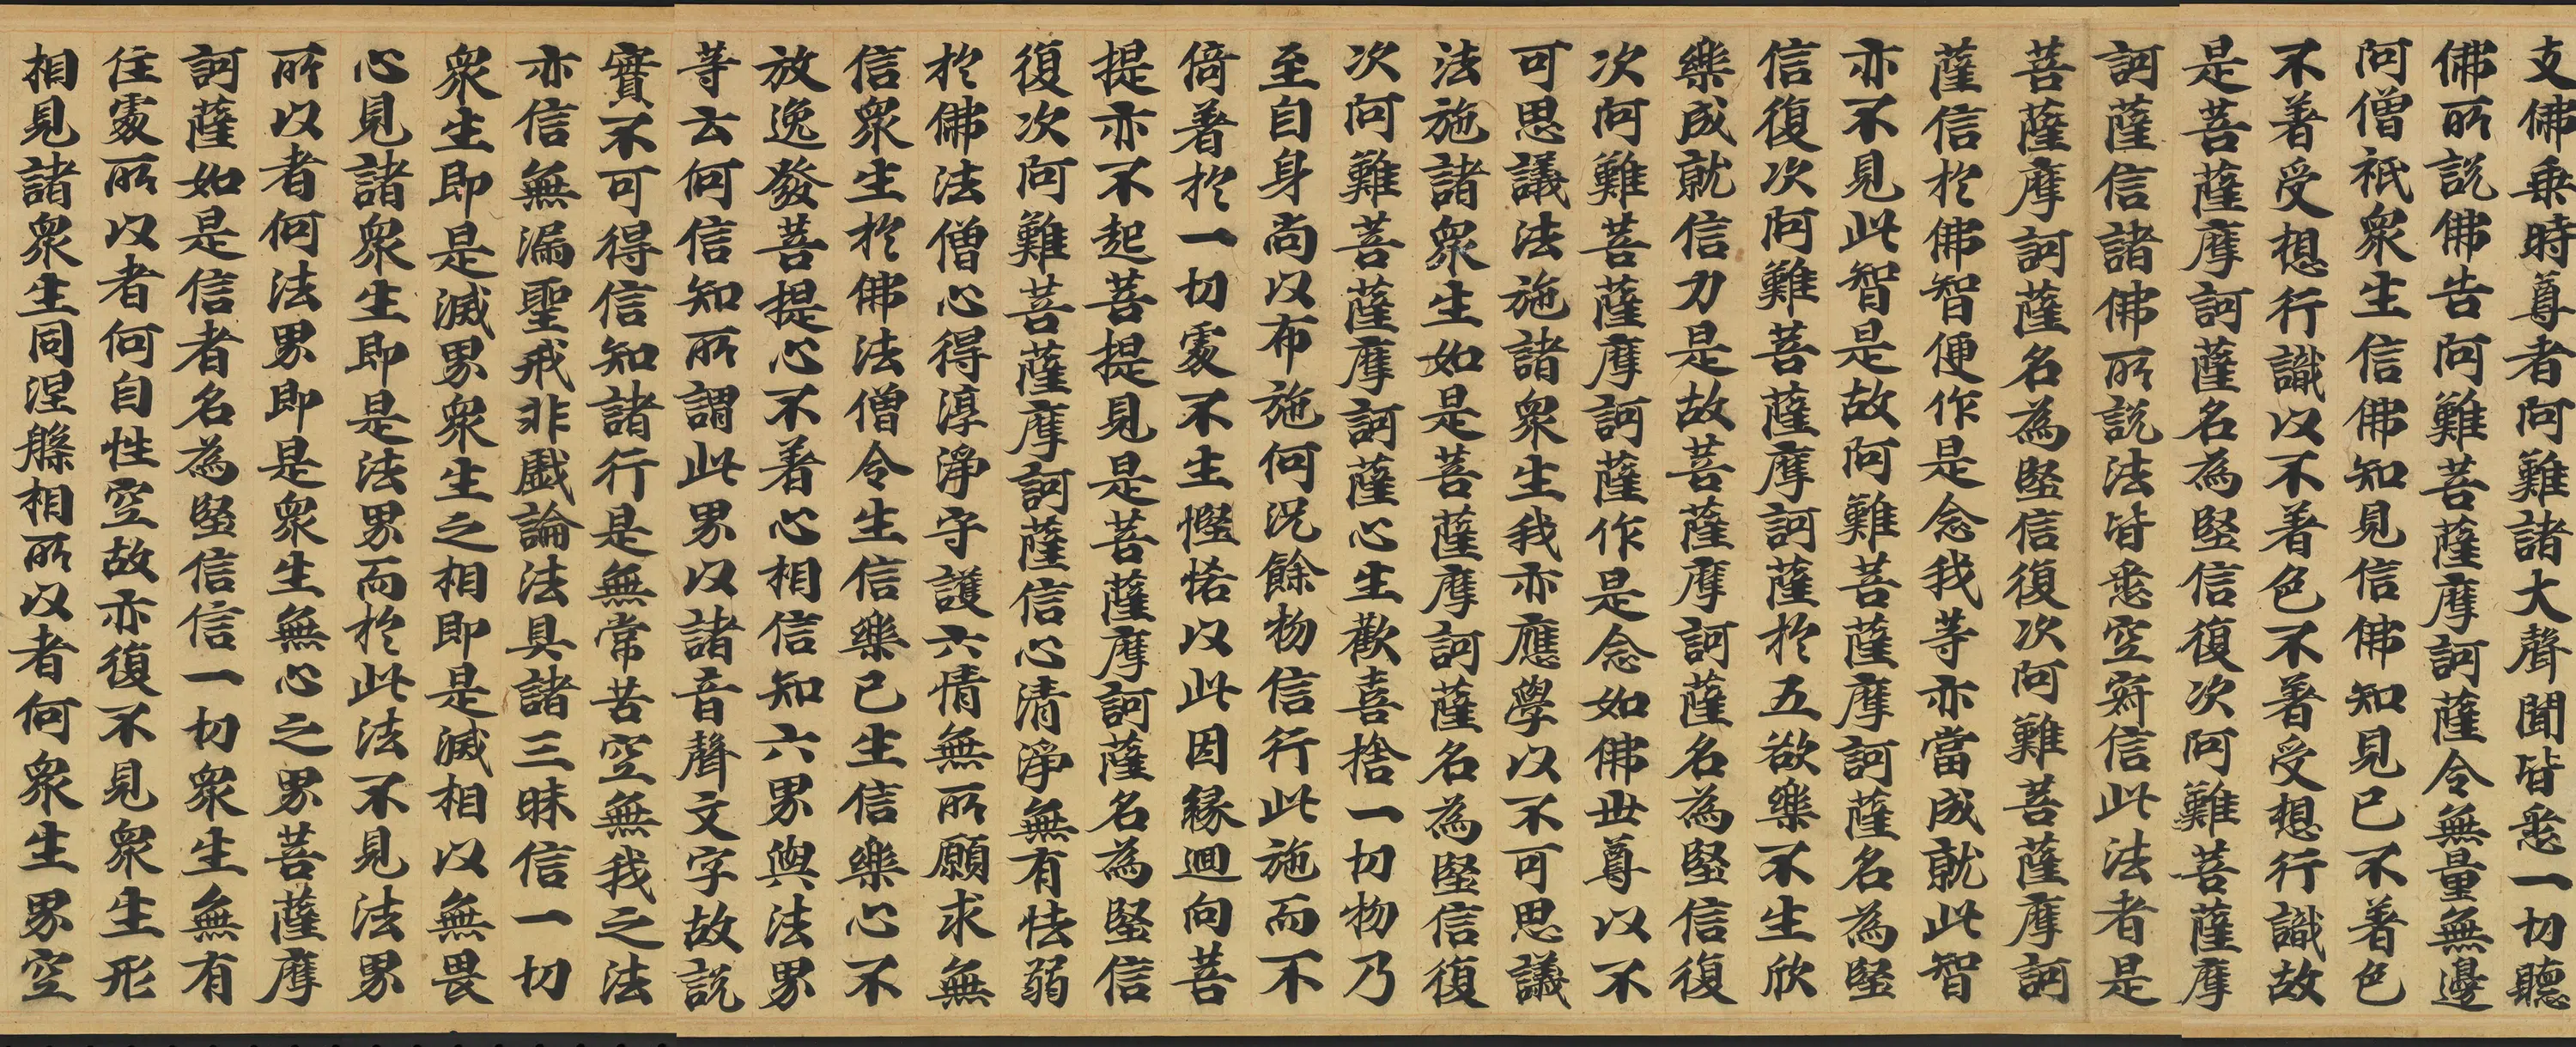 支佛乗時尊者阿難諸大聲聞皆悉一切聽
佛所說佛告阿難菩薩摩訶薩令無量無邊
阿僧祇衆生信佛知見信佛知見已不著色
不著受想行識以不著色不著受想行識故
是菩薩摩訶薩名為堅信復次阿難菩薩摩
訶薩信諸佛所說法皆悉空寂信此法者是
菩薩摩訶薩名為堅信復次阿難菩薩摩訶
薩信於佛智便作是念我等亦當成就此智
亦不見此智是故阿難菩薩摩訶薩名為堅
信復次阿難菩薩摩訶薩於五欲樂不生欣
樂成就信力是故菩薩摩訶薩名為堅信復
次阿難菩薩摩訶薩作是念如佛世尊以不
可思議法施諸衆生我亦應學以不可思議
法施諸衆生如是菩薩摩訶薩名為堅信復
次阿難菩薩摩訶薩心生歡喜捨一切物乃
至自身尚以布施何況餘物信行此施而不
倚著於一切處不生慳悋以此因緣迴向菩
提亦不起菩提見是菩薩摩訶薩名為堅信
復次阿難菩薩摩訶薩信心清淨無有怯弱
於佛法僧心得淳淨守護六情無所願求無
信衆生於佛法僧令生信樂已生信樂心不
放逸發菩提心不著心相信知六界與法界
等云何信知所謂此界以諸音聲文字故說
實不可得信知諸行是無常苦空無我之法
亦信無漏聖戒非戲論法具諸三昧信一切
衆生即是滅界衆生之相即是滅相以無畏
心見諸衆生即是法界而於此法不見法界
所以者何法界即是衆生無心之界菩薩摩
訶薩如是信者名為堅信信一切衆生無有
住處所以者何自性空故亦復不見衆生形
相見諸衆生同涅槃相所以者何衆生界空